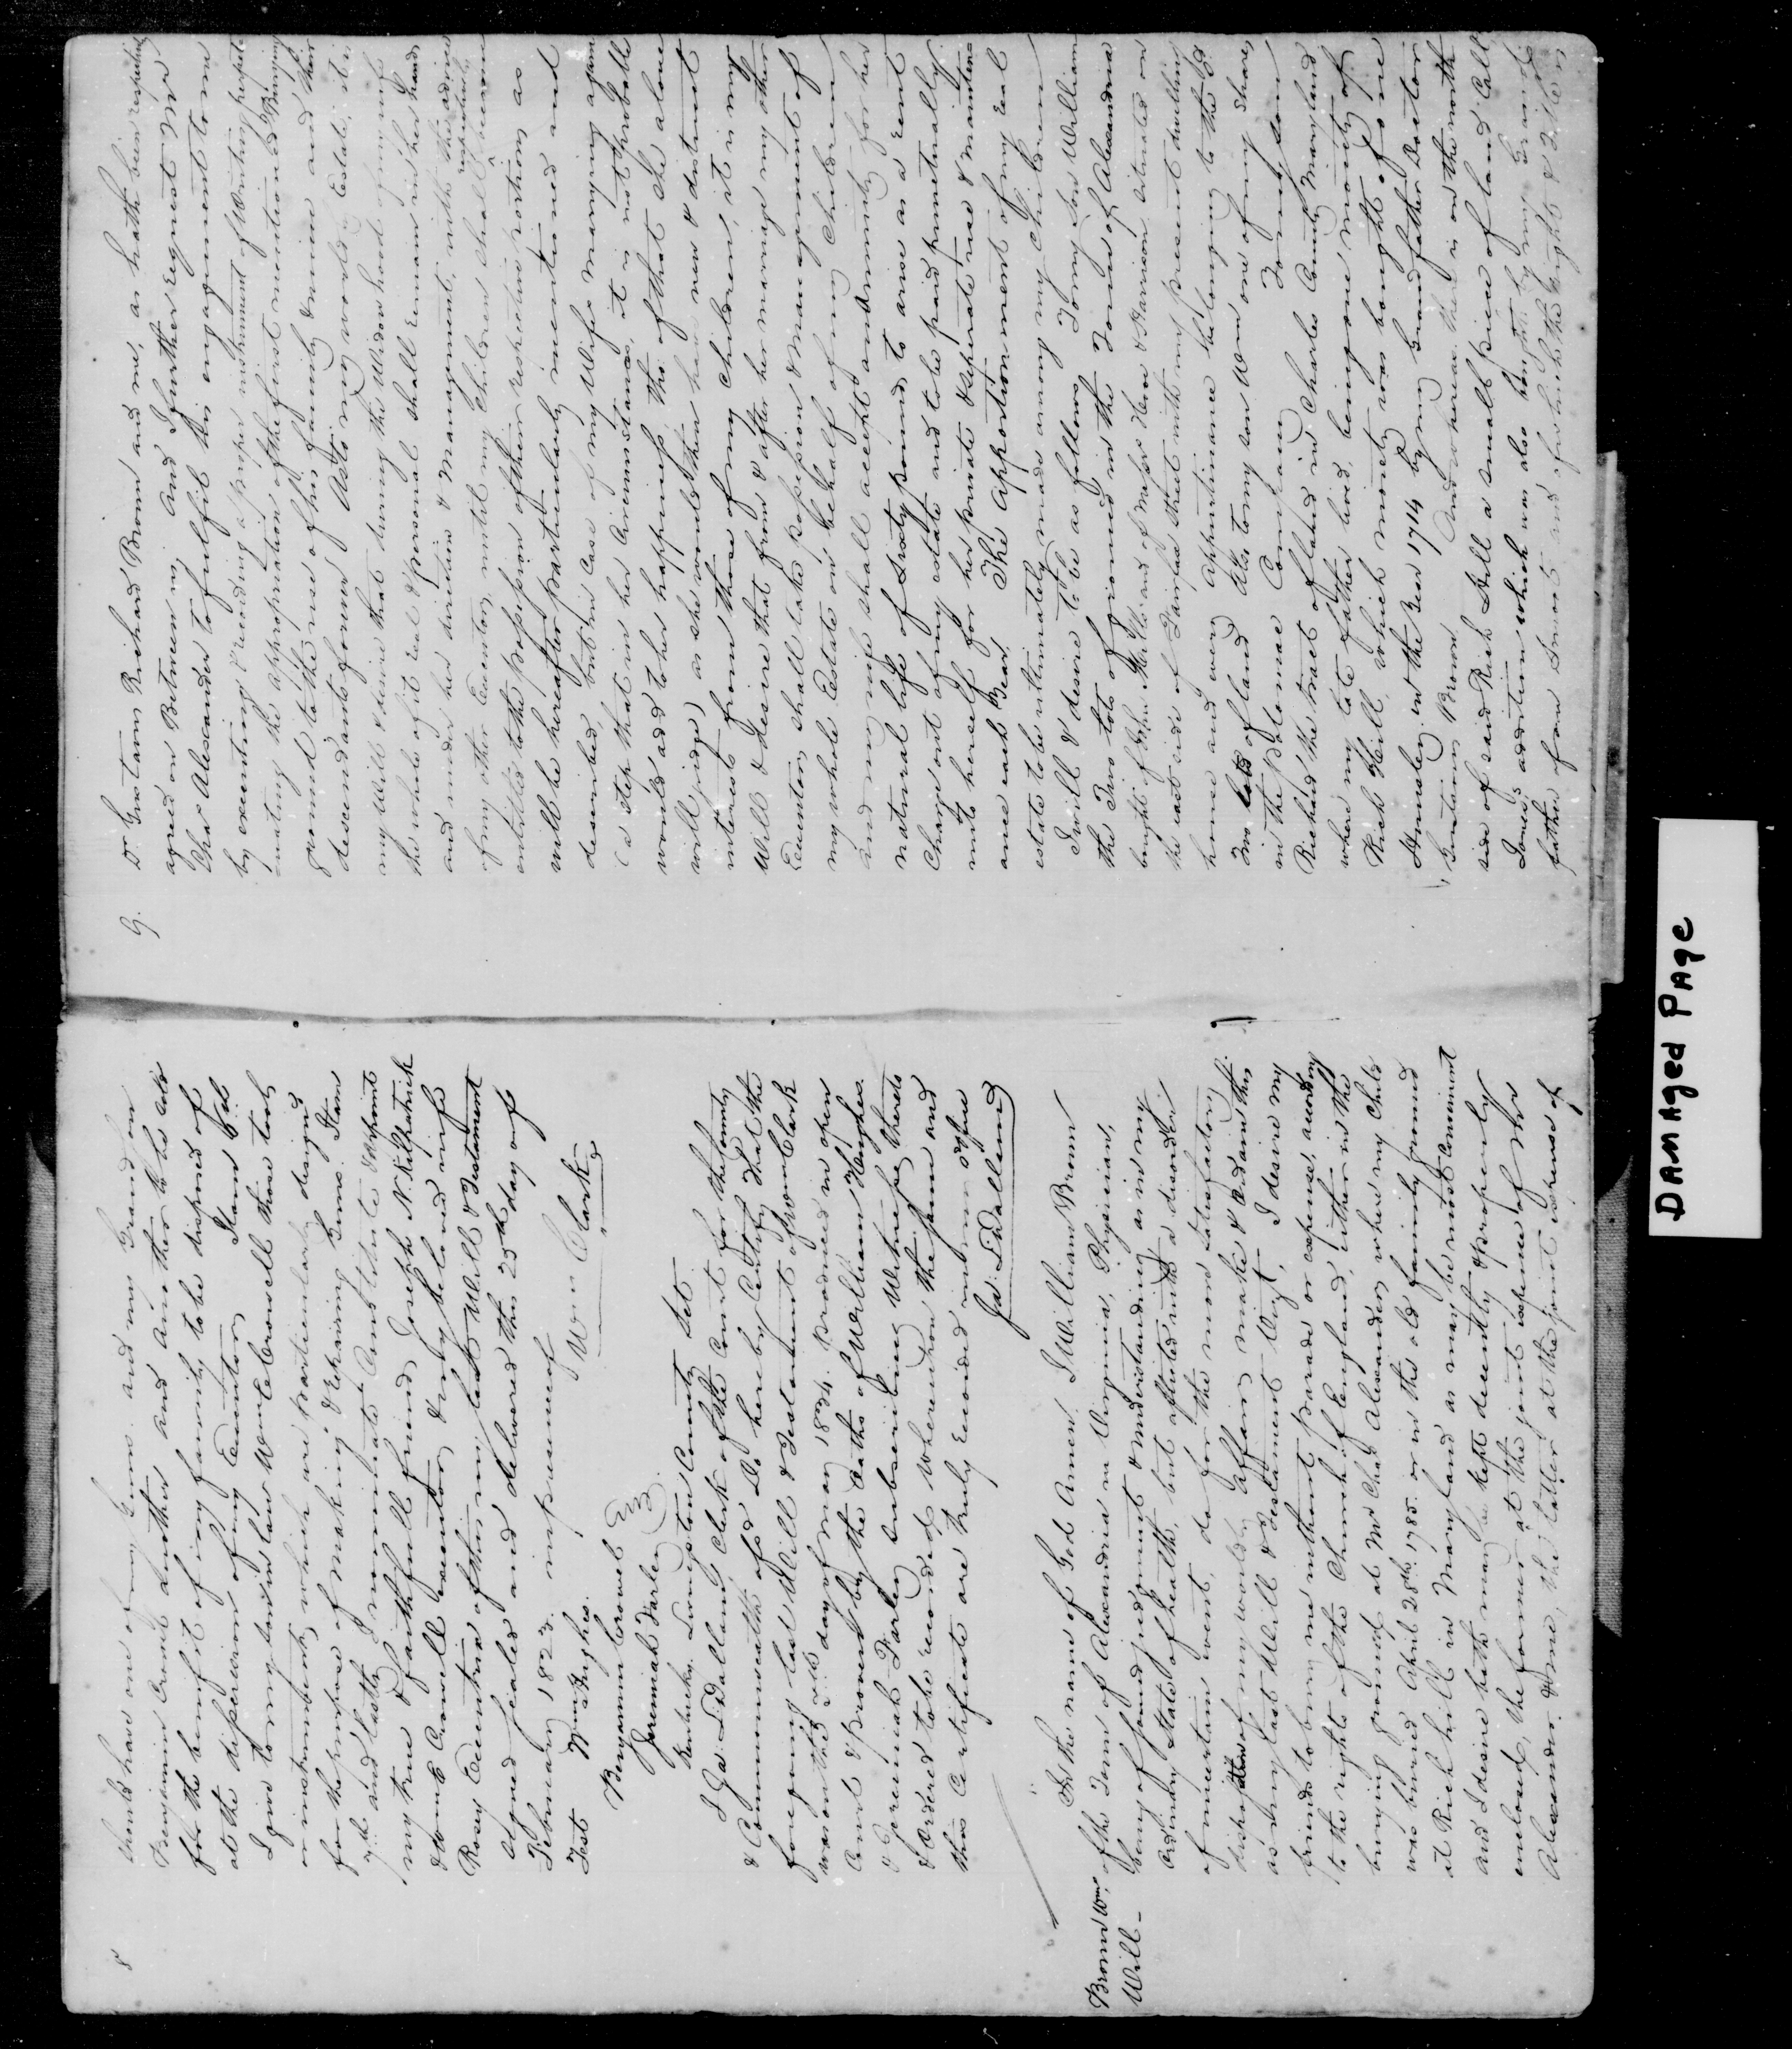 8
thirds have one of my Guns and my Grand son
Benjamin Cravit another and Another to be Sold
for the benefit of my family to be disposed of
at the dispersion of my Executors Item 6th
I give to my son in law Wm C Crowell those tools
or instruments which are particularly designed
for the purpose of Making & Repairing Guns. Item
7th and lastly I nominate Constitute & appoint
my true & faithfull friend Joseph N. Kilpatrick
& Wm C Crowell executors & my beloved wife
Rosey Executrix of this my last Will & Testament
signed sealed and delivered this 25th day of
February 1823 in presence of
Test Wm Hughes. Wm Clark
Benjamin Cravel
Jeremiah Farley
Kentucky Livingston County Set
I Ja: L Dallam Clerk of the Court for the County
& Commonwealth afsd Do hereby Certify that the
foregoing last Will & Testament of Wm Clark
was on the day of may 1834. produced in open
Court & proved by the Oaths of William Hughes
& Jeremiah Farley subscribing Witnesses thereto
& Ordered to be recorded whereupon the same and
this Certificate are truly recorded in my office
Ja: L Dallam
Brown Wm
Will -
In the name of God Amen. I William Brown
of the Town of Alexandria in Virginia, Physician,
being of sound judgment & understanding as in my
ordinary State of health, but afflicted with a disorder
of uncertain event, do for the more satisfactory
disposition of my worldly affairs make & ordain this
as my last Will & Testament Viz, I desire my
friends to bury me without parade or expense, according
to the rights of the Church of England, either in the
burying ground at Mr Chas Alexanders where my Child
was buried April 28th 1785. or in the old family ground
at Rich hill in Maryland as may be most Convenient
and I desire both may be kept decently & properly
enclosed, the former at the joint expence of Mr
Alexander & me, the latter at the joint expense of
9.
Dr Gustavus Richard Brown and me, as hath been respectively
agreed on Between us, And I further request Mr
Chas Alexander to fulfil his engagement to me
by executing & recording a proper instrument of Writing perpetu-
ating the appropriation of the first mentioned Burying
ground to the use of his family & mine and their
descendants forever. As to my worldly Estate, it is
my Will & desire that during the Widow hood of my wife
the whole of it real & personal shall remain in her hands
and under her direction & Management, with the advice
of my other Executors, until my Children shall respectively become
entitled to the possession of their respective portions as
will be hereafter particularly mentioned and
described, but in Case of my Wifes marrying again
(a step that in her Circumstances, it is not probable
would add to her happiness, tho of that She alone
will judge) as she would then have new & distinct
interests from those of my Children, it is my
Will & desire that from & after her marriage my other
Executors shall take possession & Management of
my whole Estate on behalf of my Children
and my wife shall accept an Annuity for her
natural life of sixty pounds to arise as a rent
charge out of my estate and to be paid punctually
unto herself for her private & seperate use & mainten
ance each Year. The Apportionment of my real
estate to be ultimately made among my Children
I will & desire to be as follows To my Son William
the Two lots of ground in the Town of Alexandria
bought of John Mills and of Messrs Hern & Harrison situated on
the east side of Fairfax street with my present dwelling
house and every appurtinance belonging to the Sd
Two lots of land Also to my son Wm one of my Shares
in the Patomac Company To my son
Richard the tract of land in Charles County Maryland
where my late father lived, being one moiety of
Rich Hill, which moiety was bought of one
Hensley in the Year 1714 by my Grandfather Doctor
Gustavus Brown And whereas there is on the north
side of said Rich Hill a small piece of land Call'd
Jones's addition which was also bought by my Grand
father of one and of which the right